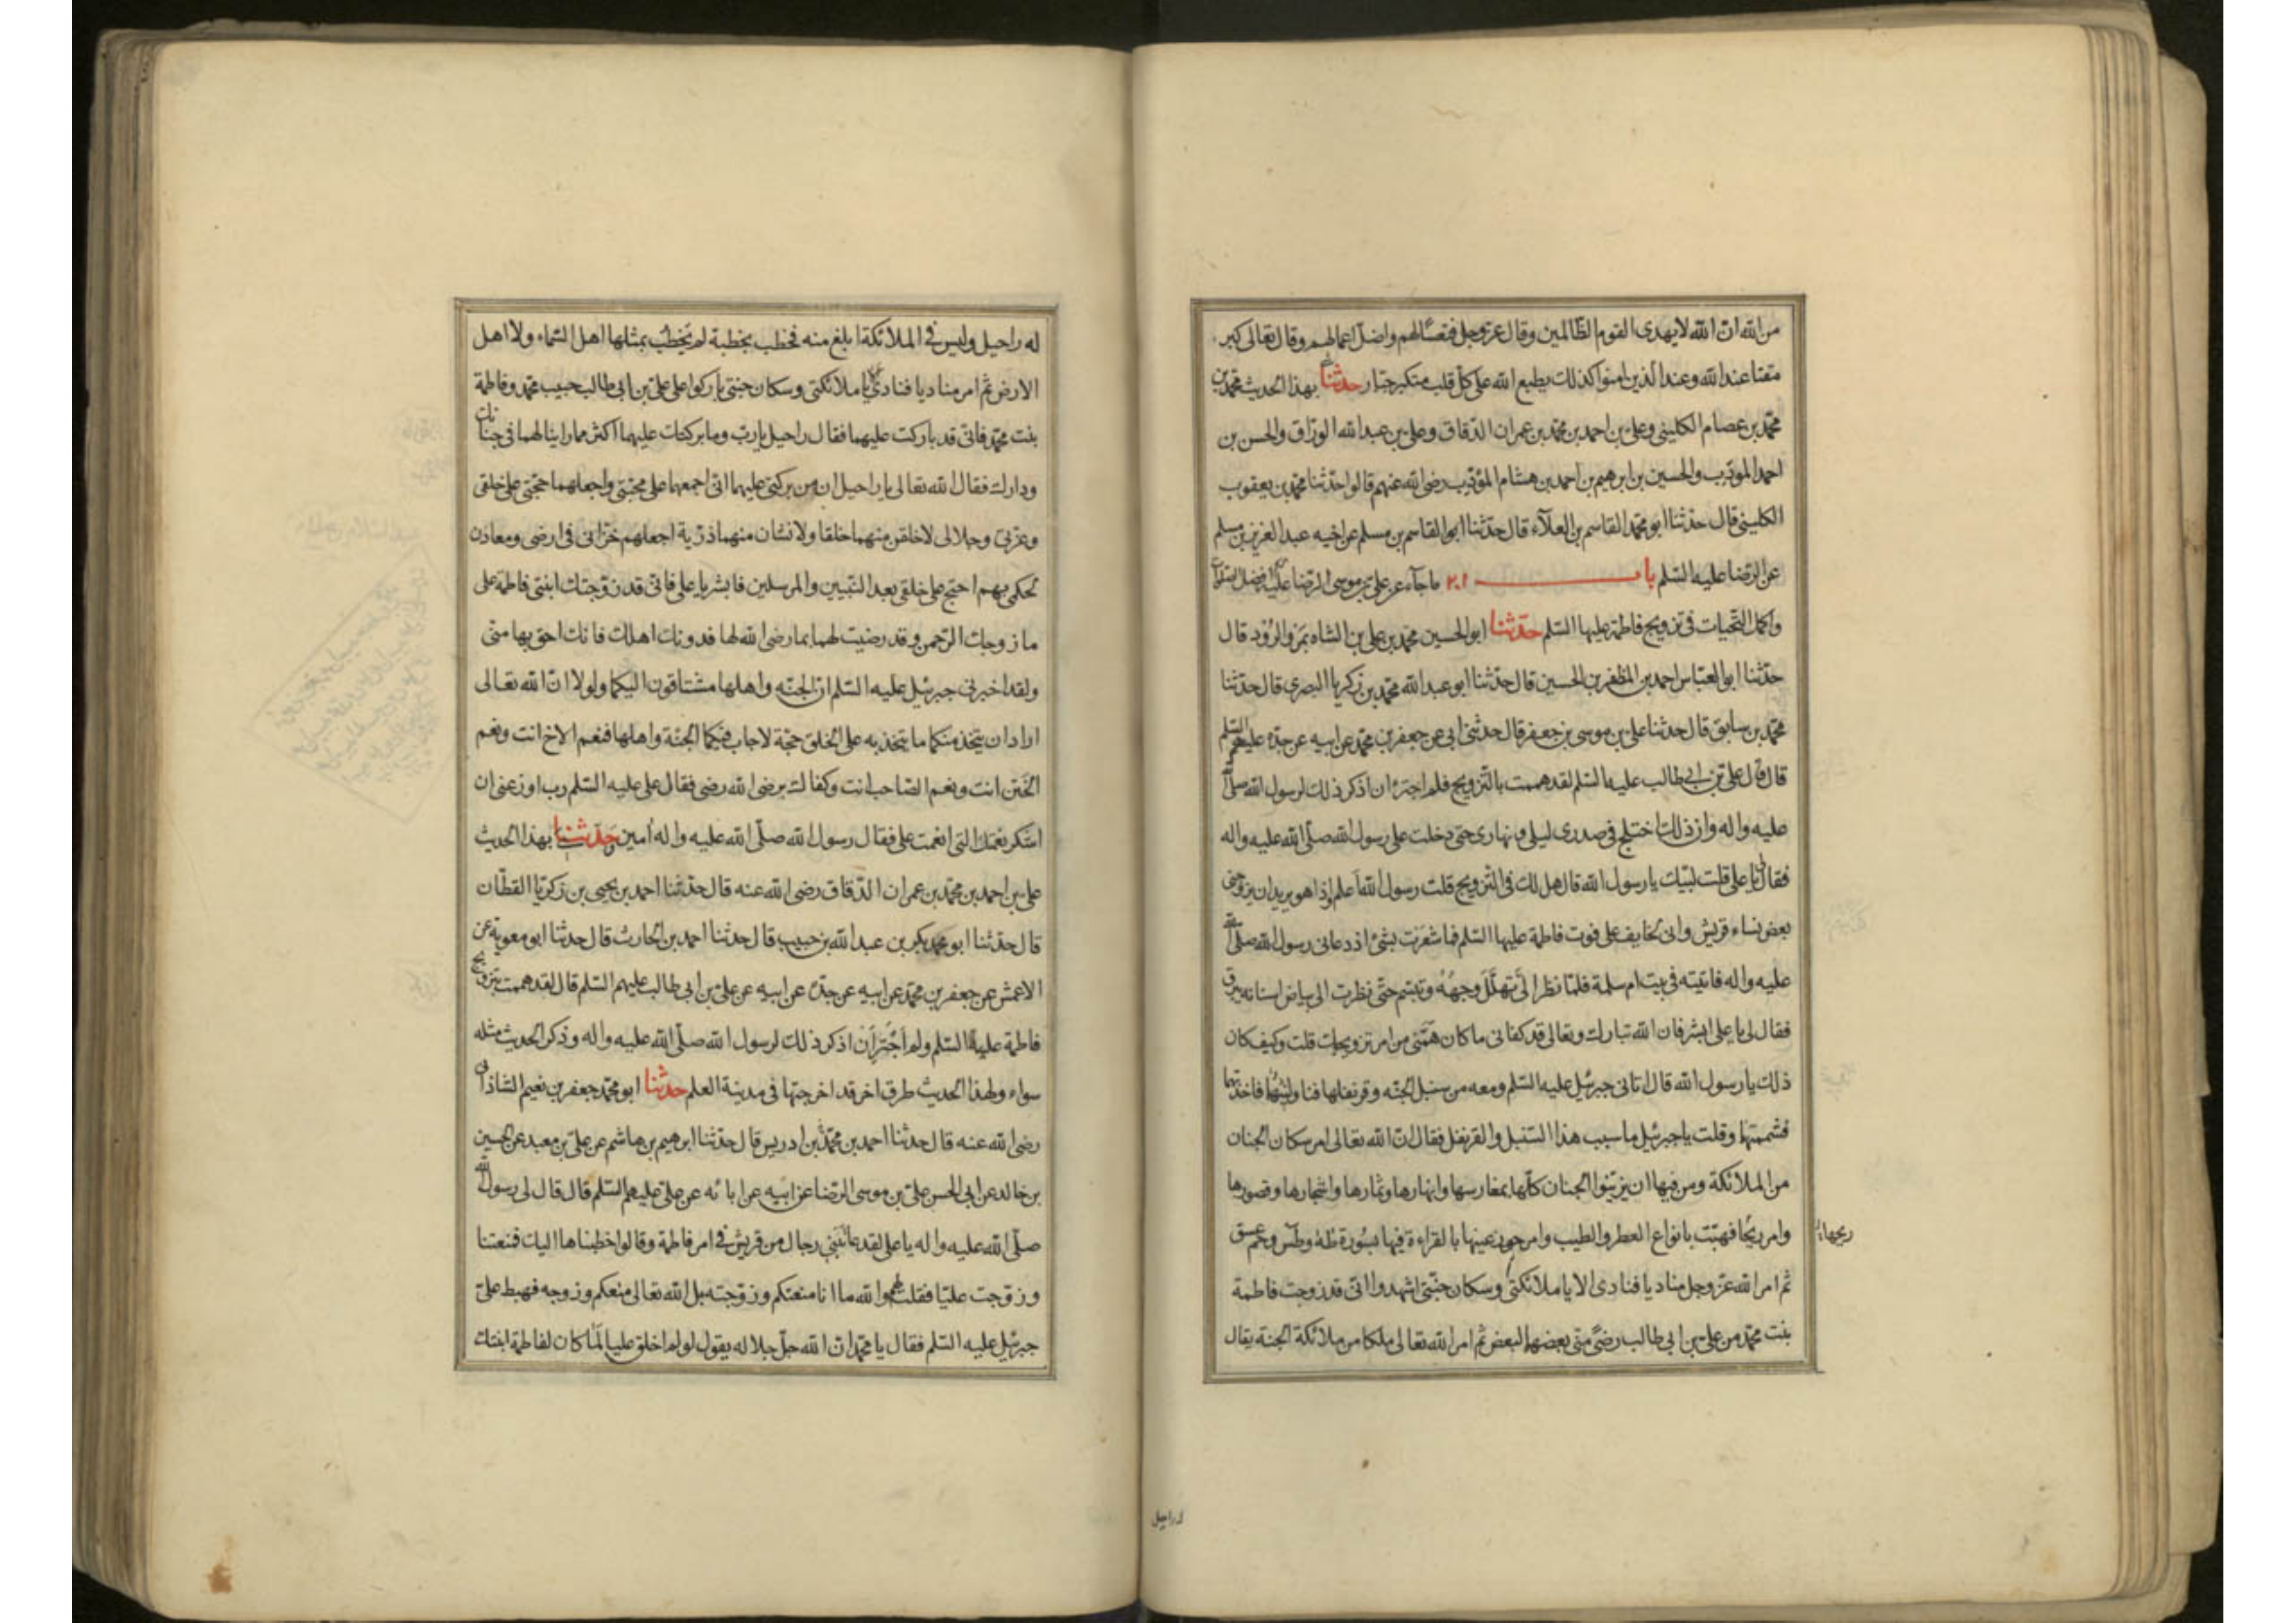 من الله ان الله لا يهدى القوم الظالمين وقال عز وجل فتعسا لهم واضل اعمالهم وقال تعالى كبر
مقتا عند الله وعند الذين امنوا كذلك يطبع الله على كل قلب متكبر جبار حدثنا بهذا الحديث محمد بن
محمد بن عصام الكلينى وعلى بن احمد بن محمد بن عمران الدقاق وعلى بن عبد الله الوراق والحسن بن
احمد المودب والحسين بن ابرهيم بن احمد بن هشام المؤدب رضى الله عنهم قالوا حدثنا محمد بن يعقوب
الكلينى قال حدثنا ابو محمد القاسم بن العلاء قال حدثنا ابو القاسم بن مسلم عن اخيه عبد العزيز بن مسلم
عن الرضا عليه السلم باب ٢٠١ ما جاء عن على بن موسى الرضا عليه افضل
واكمل التحيات فى تزويج فاطمة عليها السلم حدثنا ابو الحسين محمد بن على بن الشاه بمرو الرود قال
حدثنا ابو العباس احمد بن المظفر بن الحسين قال حدثنا ابو عبد الله محمد بن زكريا البصرى قال حدثنا
محمد بن سابق قال حدثنا على بن موسى بن جعفر قال حدثنى ابى عن جعفر بن محمد عن ابيه عن جده عليهم السلم
قال قال على بن ابى طالب عليه السلم لقد هممت بالتزويج فلم اجترء ان اذكر ذلك لرسول الله صلى الله
عليه واله وان ذلك اختلج فى صدرى ليلى ونهارى حتى دخلت على رسول الله صلى الله عليه واله
فقال لى يا على قلت لبيك يا رسول الله قال هل لك فى التزويج قلت رسول الله اعلم واذا هو يريد ان يزوجنى
بعض نساء قريش وانى لخايف على فوت فاطمة عليها السلم فما شعرت بشئ اذ دعانى رسول الله صلى الله
عليه واله فاتيته فى بيت ام سلمة فلما نظر الى تهلل وجهه وتبسم حتى نظرت الى بياض اسنانه يبرق
فقال لى يا على ابشر فان الله تبارك وتعالى قد كفانى ما كان همنى من امر تزويجك قلت وكيف كان
ذلك يا رسول الله قال اتانى جبرئيل عليه السلم ومعه من سنبل الجنه وقرنفلها فناولنيهما فاخذتهما
فشممتهما وقلت يا جبرئيل ما سبب هذا السنبل والقرنفل فقال ان الله تعالى امر سكان الجنان
من الملائكة ومن فيها ان يزينوا الجنان كلها بمغارسها وانهارها وثمارها واشجارها وقصورها
وامر ريحا فهبت بانواع العطر والطيب وامر حور عينها بالقراءة فيها بسورة طه وطس وحمعسق
ريحها
ثم امر الله عز وجل مناديا فنادى الا يا ملائكتى وسكان جنتى اشهدوا انى قد زوجت فاطمة
بنت محمد من على بن ابى طالب رضى منى بعضهما لبعض ثم امر الله تعالى ملكا من ملائكة الجنة يقال
له راحيل
له راحيل وليس فى الملائكة ابلغ منه فخطب بخطبة لم يخطب بمثلها اهل السماء ولا اهل
الارض ثم امر مناديا فنادى يا ملائكتى وسكان جنتى باركوا على على بن ابى طالب حبيب محمد وفاطمة
بنت محمد فانى قد باركت عليهما فقال راحيل يا رب وما بركتك عليهما اكثر مما راينا لهما فى جنانك
ودارك فقال الله تعالى يا راحيل ان من بركتى عليهما انى اجمعهما على محبتى واجعلهما حجتى على خلقى
وعزتى وجلالى لاخلقن منهما خلقا ولانشان منهما ذرية اجعلهم خزانى فى ارضى ومعادن
لحكمى بهم احتج على خلقى بعد النبيين والمرسلين فابشر يا على فانى قد زوجتك ابنتى فاطمة على
ما زوجك الرحمن وقد رضيت لهما بما رضى الله لها فدونك اهلك فانك احق بها منى
ولقد اخبرنى جبرئيل عليه السلم ان الجنه واهلها مشتاقون اليكما ولولا ان الله تعالى
اراد ان يتخذ منكما ما يتخذ به على الخلق حجة لاجاب فيكما الجنة واهلها فنعم الاخ انت ونعم
الختن انت ونعم الصاحب انت وكفاك برضى الله رضى فقال على عليه السلم رب اوزعنى ان
اشكر نعمتك التى انعمت على فقال رسول الله صلى الله عليه واله امين حدثنا بهذا الحديث
على بن احمد بن محمد بن عمران الدقاق رضى الله عنه قال حدثنا احمد بن يحيى بن زكريا القطان
قال حدثنا ابو محمد بكر بن عبد الله بن حبيب قال حدثنا احمد بن الحارث قال حدثنا ابو معوية عن
الاعمش عن جعفر بن محمد عن ابيه عن جده عن ابيه عن على بن ابى طالب عليهم السلم قال لقد هممت بتزويج
فاطمة عليها السلم ولم اجترأن اذكر ذلك لرسول الله صلى الله عليه واله وذكر الحديث مثله
سواء ولهذا الحديث طرق اخر قد اخرجتها فى مدينة العلم حدثنا ابو محمد جعفر بن نعيم الشاذانى
رضى الله عنه قال حدثنا احمد بن محمد بن ادريس قال حدثنا ابرهيم بن هاشم عن على بن معبد عن الحسين
بن خالد عن ابى الحسن على بن موسى الرضا عن ابيه عن ابائه عن على عليهم السلم قال قال لى رسول الله
صلى الله عليه واله يا على لقد عاتبنى رجال من قريش فى امر فاطمة وقالوا خطبناها اليك فمنعتنا
وزوجت عليا فقلت لهم والله ما انا منعتكم وزوجته بل الله تعالى منعكم وزوجه فهبط على
جبرئيل عليه السلم فقال يا محمد ان الله جل جلاله يقول لو لم اخلق عليا لما كان لفاطمة ابنتك